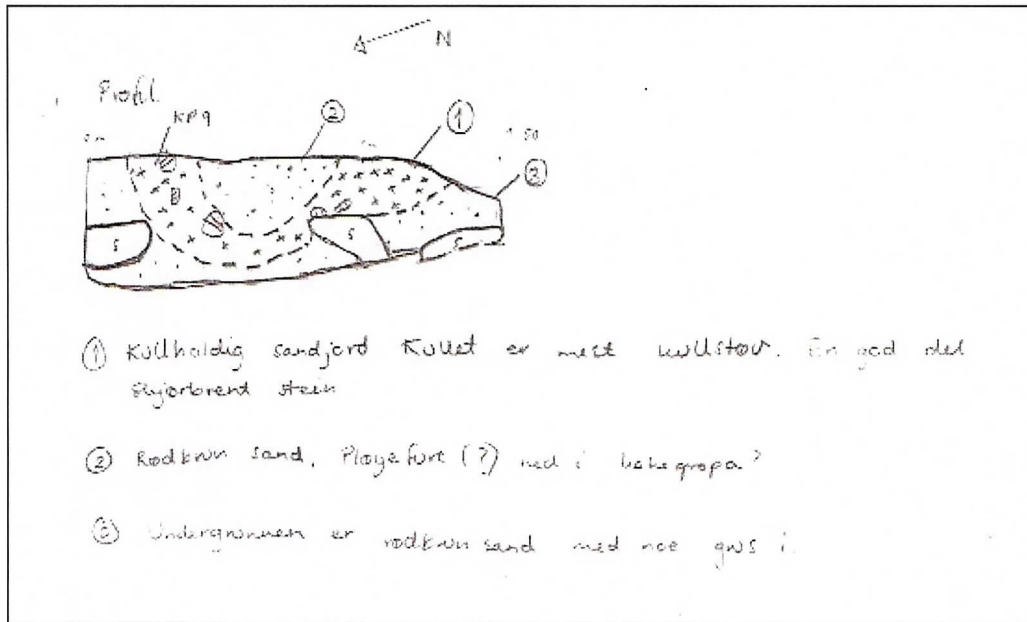 N
Profil
KP9
②
①
0m
1m
1.50
③
S
S
S
① Kullholdig sandjord Kullet er mest kullstøv. En god del
skjørbrent stein
② Rødbrun sand, Pløyefure (?) ned i kokegropa?
③ Undergrunnen er rødbrun sand med noe grus i.